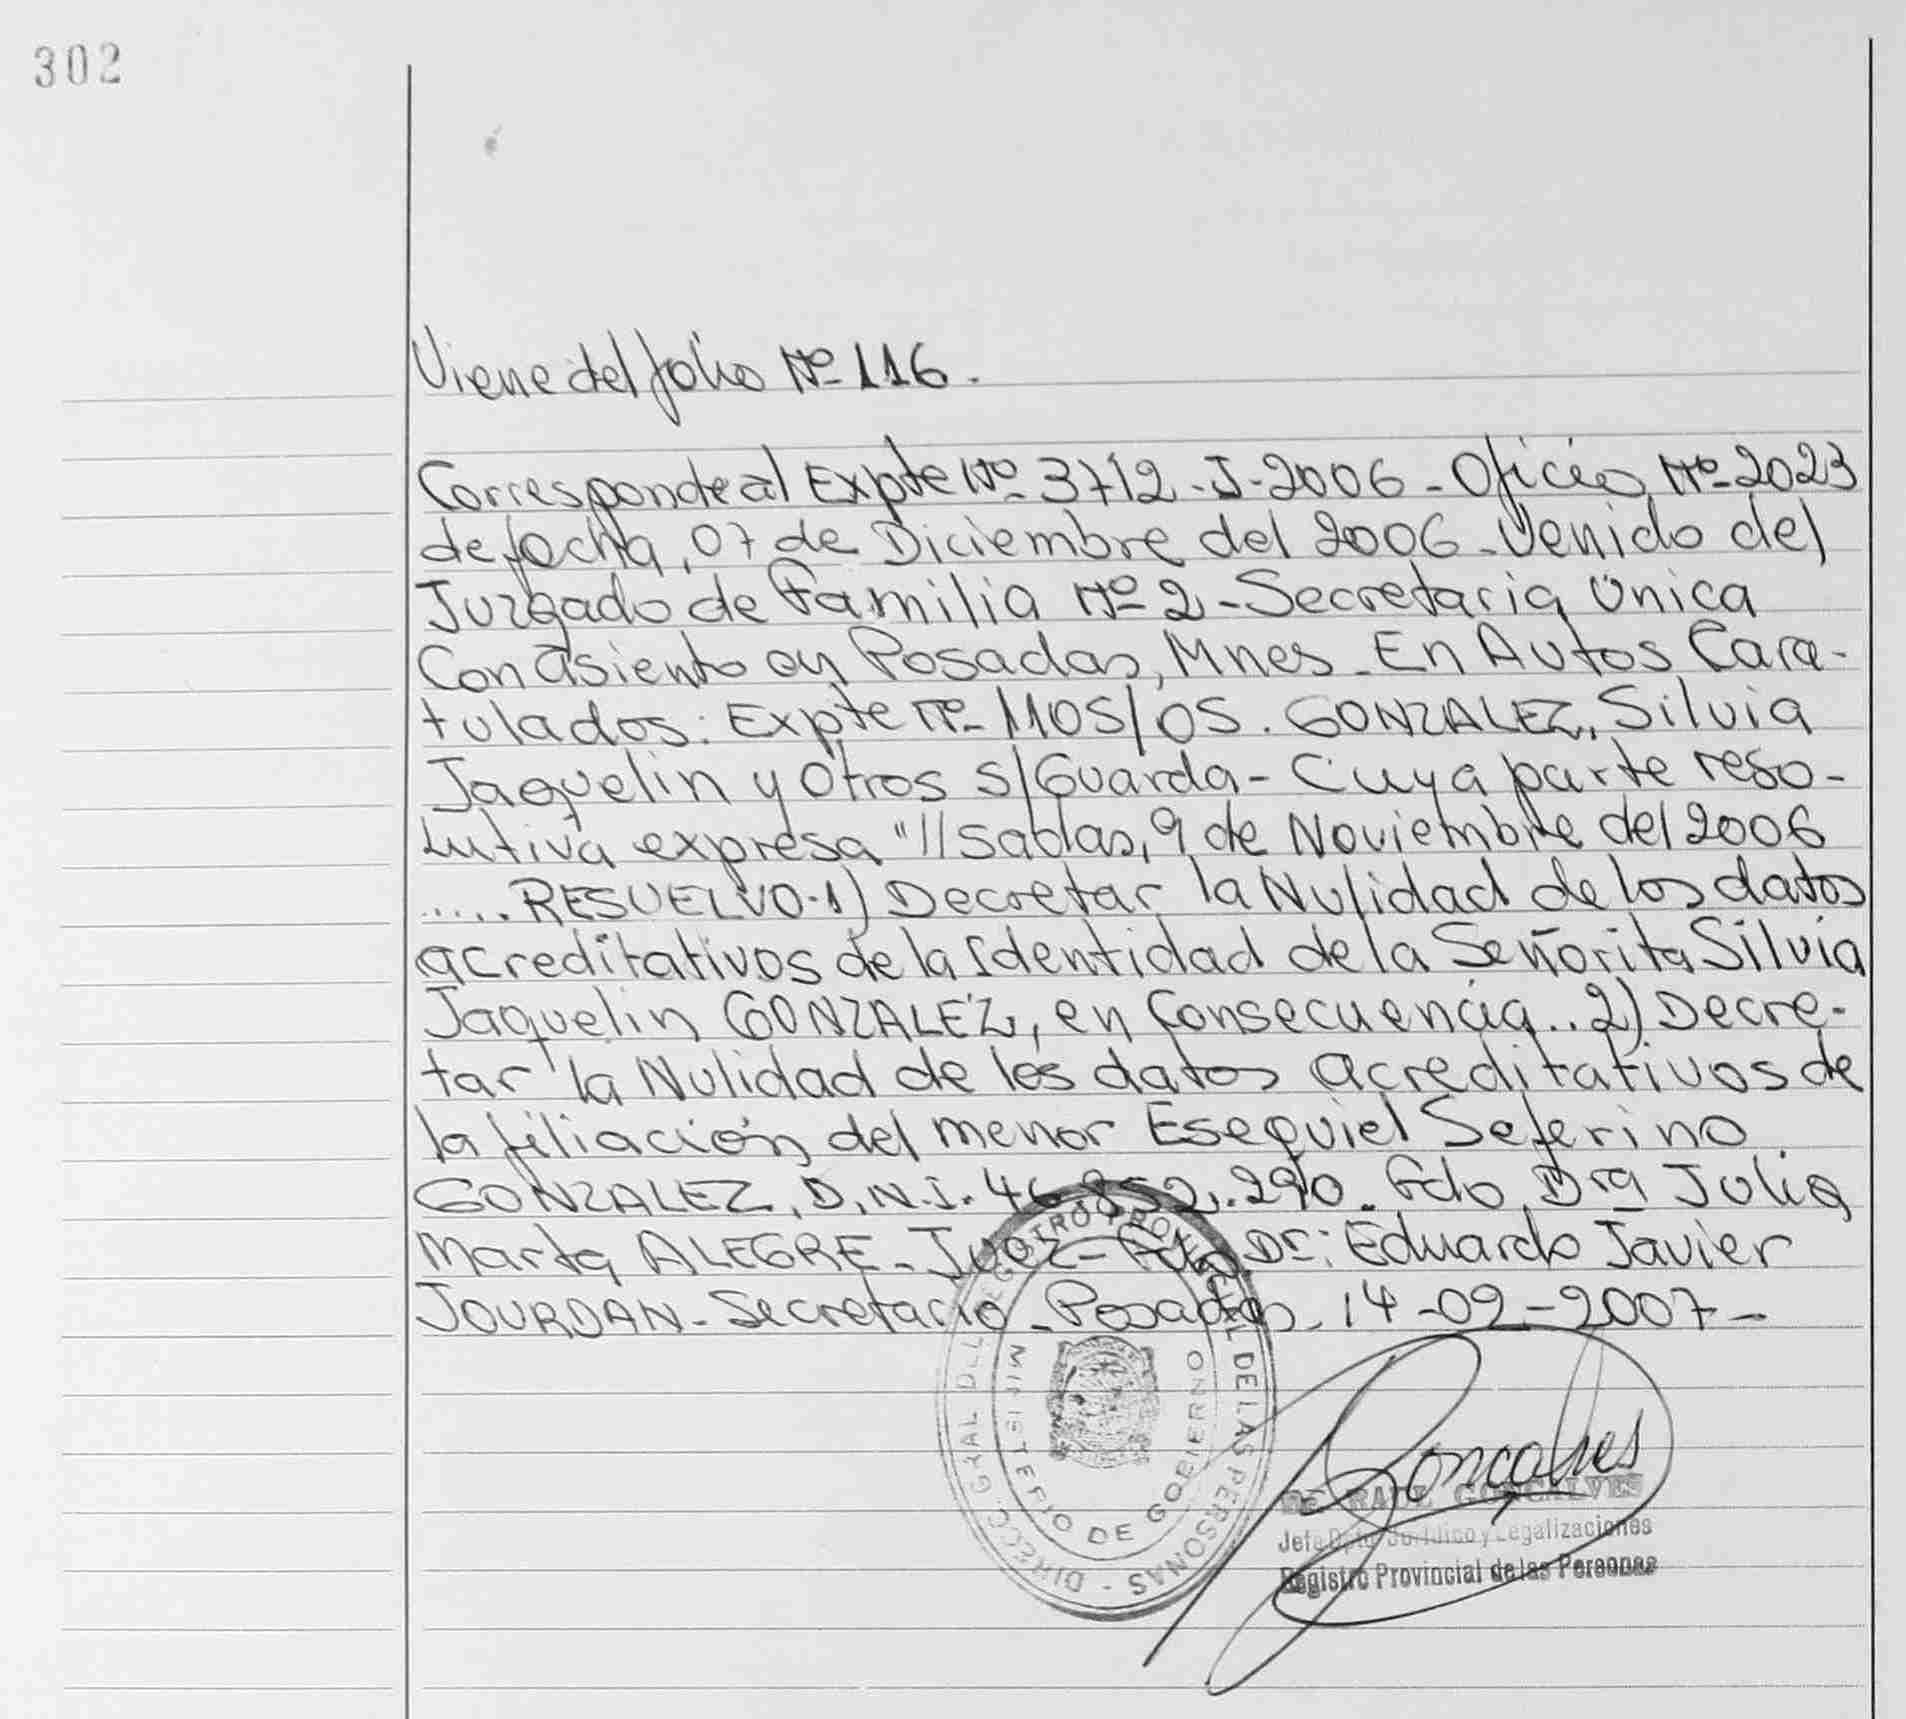 302
Viene del folio Nº 116.
Corresponde al Expte Nº 3712-J-2006-Oficio Nº 2023
de fecha, 07 de Diciembre del 2006-Venido del
Juzgado de Familia Nº 2-Secretaria Única
Con asiento en Posadas, Mnes-En Autos Cara-
tulados: Expte Nº 1105/05. GONZALEZ, Silvia
Jaquelin y Otros s/Guarda-Cuya parte reso-
lutiva expresa "//sadas, 9 de Noviembre del 2006
..... RESUELVO-1) Decretar la Nulidad de los datos
acreditativos de la Identidad de la Señorita Silvia
Jaquelin GONZALEZ, en Consecuencia..2) Decre-
tar la Nulidad de los datos acreditativos de
la filiación del menor Esequiel Seferino
GONZALEZ, D.N.I. 46.852.290. Fdo Dra Julia
Marta ALEGRE-Juez-Fdo Dr: Eduardo Javier
JOURDAN-Secretario-Posadas, 14-02-2007-
DIRECC. GRAL DEL REGISTRO PROVINCIAL DE LAS PERSONAS -
MINISTERIO DE GOBIERNO
Goncalves
RAUL GONCALVES
Jefe Dpto Jurídico y Legalizaciones
Registro Provincial de las Personas